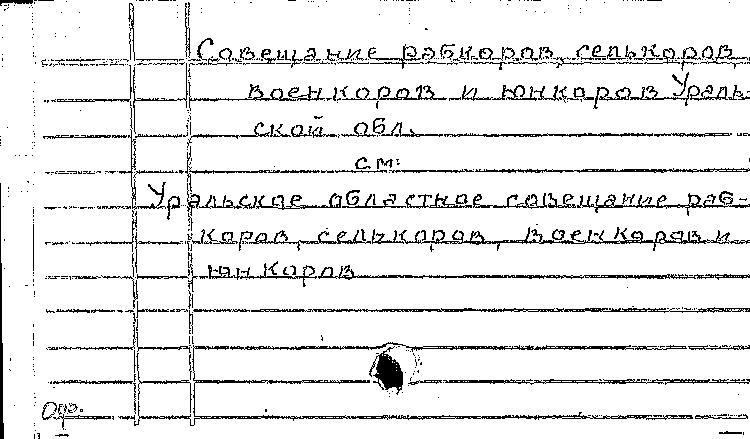 Совещание рабкоров, селькоров,
военкоров и юнкоров Ураль-
ской обл.
см:
Уральское областное совещание раб-
коров, селькоров, военкоров и
юнкоров